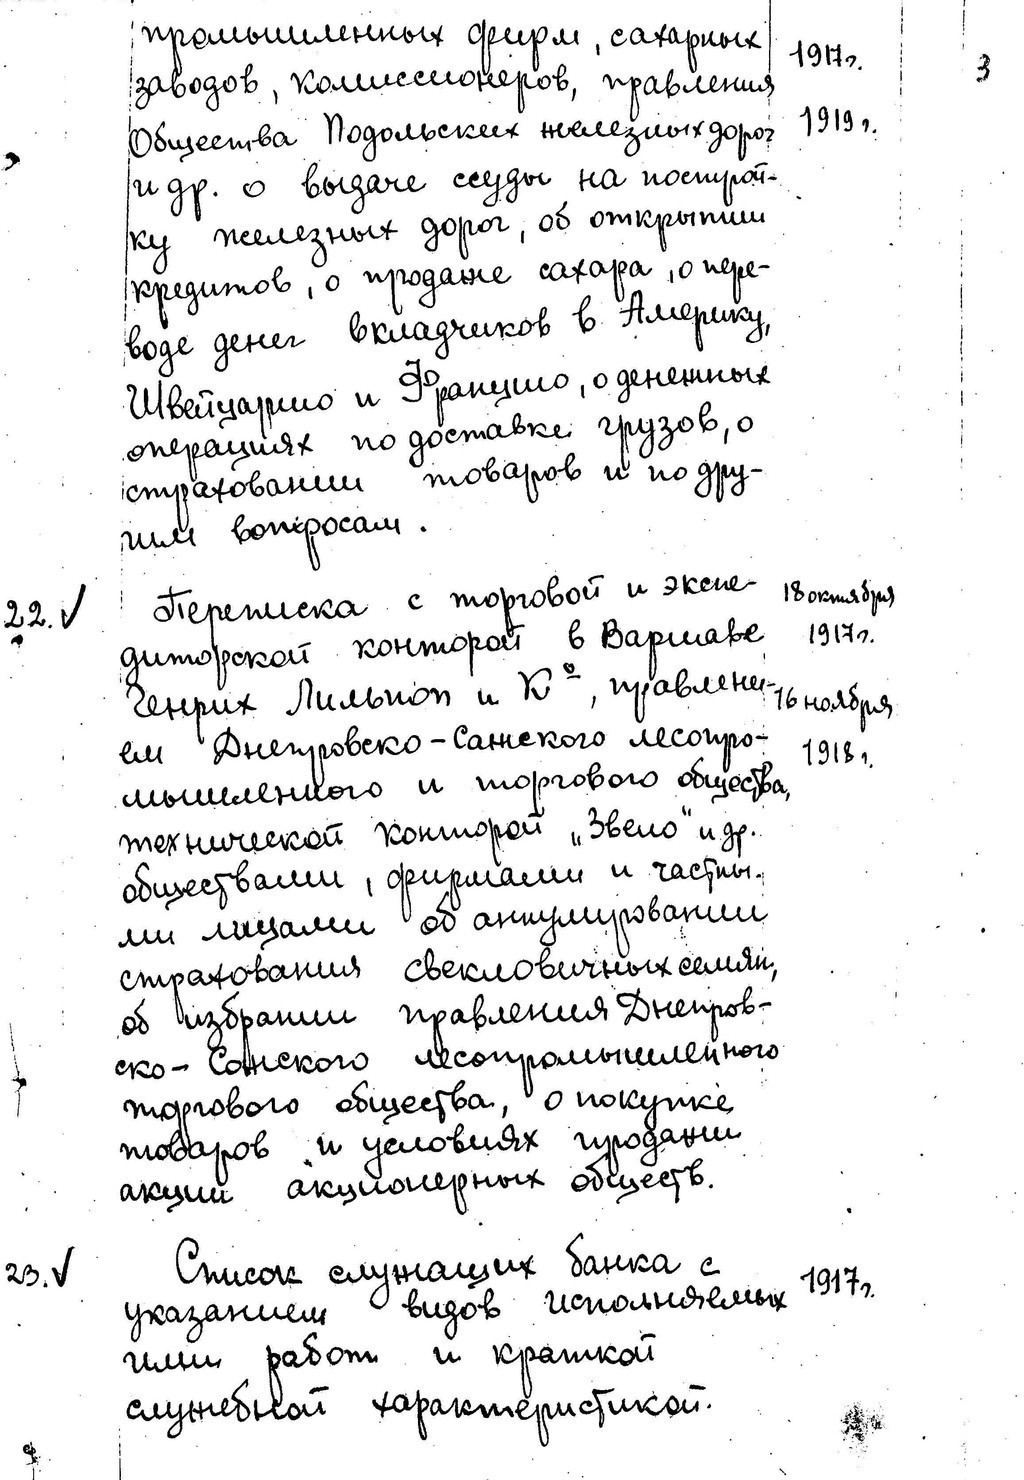 промышленных фирм, сахарных 1917 г. 3
заводов, комиссионеров, правления
Общества Подольских железных дорог 1919 г.
и др. о выдаче ссуды на построй-
ку железных дорог, об открытии
кредитов, о продаже сахара, о пере-
воде денег вкладчиков в Америку,
Швейцарию и Францию, о денежных
операциях по доставке грузов, о
страховании товаров и по дру-
гим вопросам.
22. ✓ Переписка с торговой и экспе- 18 октября
диторской конторой в Варшаве 1917 г.
Генрих Лильпоп и Кº, правлени- 16 ноября
ем Днепровско-Сожского лесопро- 1918 г.
мышленного и торгового общества,
технической конторой „Звено" и др.
обществами, фирмами и частны-
ми лицами об аннулировании
страхования свекловичных семян,
об избрании правления Днепров-
ско-Сожского лесопромышленного
торгового общества, о покупке
товаров и условиях продажи
акций акционерных обществ.
23. ✓ Список служащих банка с 1917 г.
указанием видов исполняемых
ими работ и краткой
служебной характеристикой.